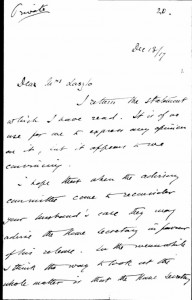 Private
20.
Dec 18/17
Dear Mrs Laszlo
I return the statement
which I have read. It is of no
use for me to express any opinion
on it, but it appears to me
convincing.
I hope that when the advisory
committee come to reconsider
your husband's case they may
advise the Home Secretary in favour
of his release. In the meanwhile
I think the way to look at the
whole matter is that the Home Secretary